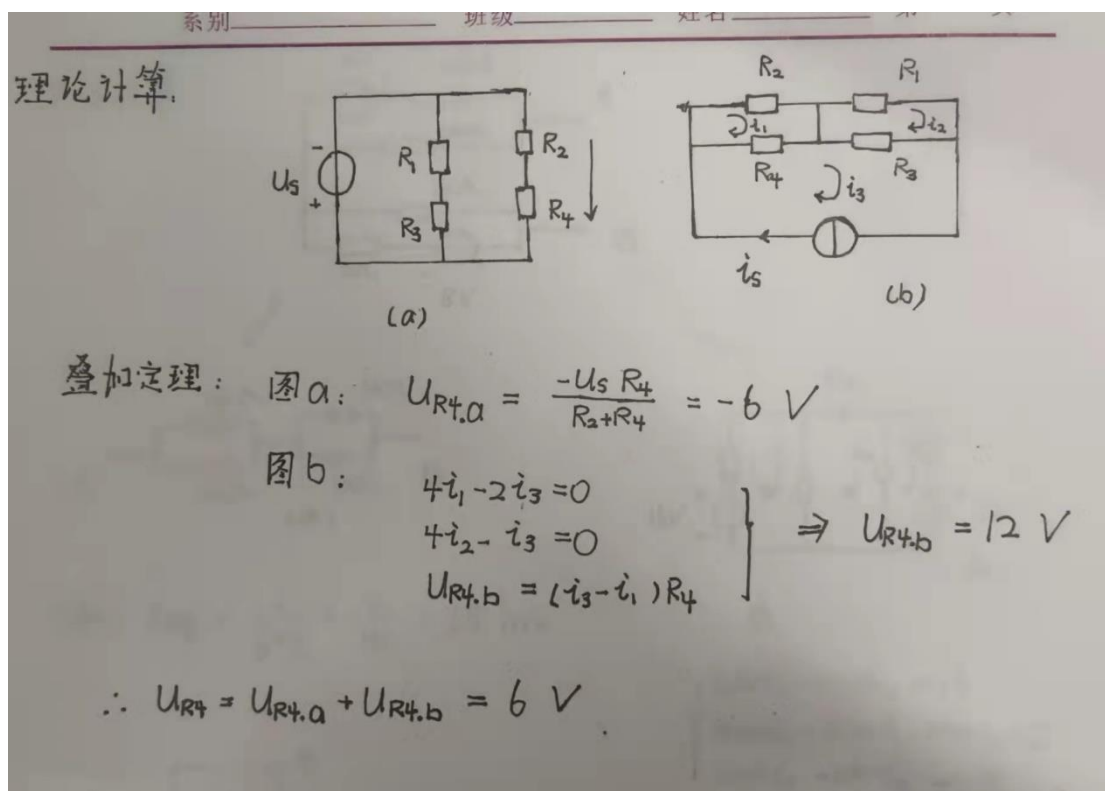 系别 班级 姓名 第
理论计算:
Us - +
R1
R3
R2
R4
(a)
R2 R1
i1 i2
R4 R3
i3
is
(b)
叠加定理: 图a: UR4.a = -Us R4 / R2+R4 = -6 V
图b: 4i1-2i3=0
4i2- i3=0
UR4.b = (i3-i1)R4
⇒ UR4.b = 12 V
∴ UR4 = UR4.a + UR4.b = 6 V.